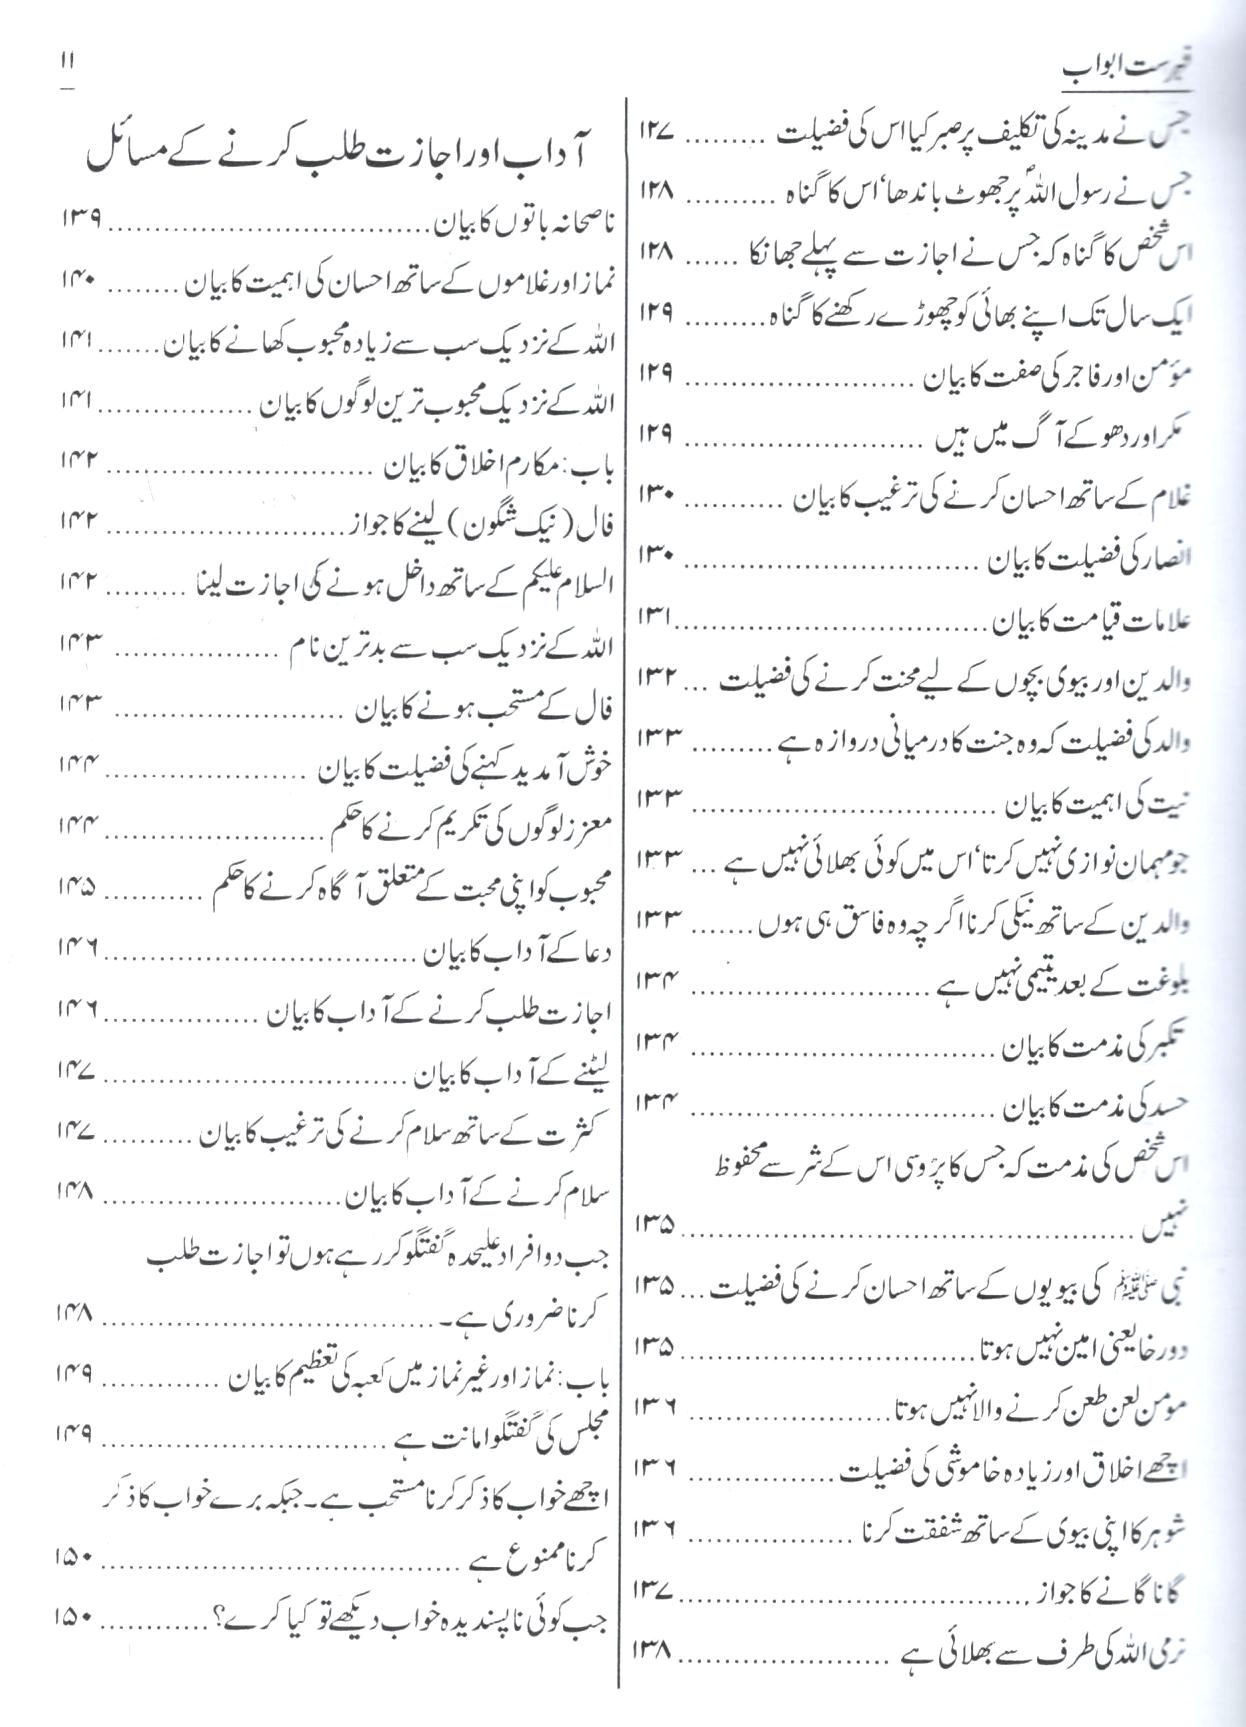 فہرست ابواب
۱۱
جس نے مدینہ کی تکلیف پر صبر کیا اس کی فضیلت ......... ۱۲۷
جس نے رسول اللہ ؐ پر جھوٹ باندھا‘ اس کا گناہ .......... ۱۲۸
اس شخص کا گناہ کہ جس نے اجازت سے پہلے جھانکا ...... ۱۲۸
ایک سال تک اپنے بھائی کو چھوڑے رکھنے کا گناہ ......... ۱۲۹
مؤمن اور فاجر کی صفت کا بیان .......................... ۱۲۹
مکر اور دھوکے آگ میں ہیں ........................... ۱۲۹
غلام کے ساتھ احسان کرنے کی ترغیب کا بیان ........... ۱۳۰
انصار کی فضیلت کا بیان ................................. ۱۳۰
علامات قیامت کا بیان ................................... ۱۳۱
والدین اور بیوی بچوں کے لیے محنت کرنے کی فضیلت ... ۱۳۲
والد کی فضیلت کہ وہ جنت کا درمیانی دروازہ ہے ......... ۱۳۳
نیت کی اہمیت کا بیان .................................. ۱۳۳
جو مہمان نوازی نہیں کرتا‘ اس میں کوئی بھلائی نہیں ہے ... ۱۳۳
والدین کے ساتھ نیکی کرنا اگر چہ وہ فاسق ہی ہوں ....... ۱۳۳
بلوغت کے بعد یتیمی نہیں ہے ........................... ۱۳۴
تکبر کی مذمت کا بیان .................................. ۱۳۴
حسد کی مذمت کا بیان .................................. ۱۳۴
اس شخص کی مذمت کہ جس کا پڑوسی اس کے شر سے محفوظ
نہیں .................................................. ۱۳۵
نبی ﷺ کی بیویوں کے ساتھ احسان کرنے کی فضیلت ... ۱۳۵
دورخا یعنی امین نہیں ہوتا ................................. ۱۳۵
مؤمن لعن طعن کرنے والا نہیں ہوتا ....................... ۱۳۶
اچھے اخلاق اور زیادہ خاموشی کی فضیلت ................. ۱۳۶
شوہر کا اپنی بیوی کے ساتھ شفقت کرنا ................... ۱۳۶
گانا گانے کا جواز ....................................... ۱۳۷
نرمی اللہ کی طرف سے بھلائی ہے ........................ ۱۳۸
آداب اور اجازت طلب کرنے کے مسائل
ناصحانہ باتوں کا بیان .................................... ۱۳۹
نماز اور غلاموں کے ساتھ احسان کی اہمیت کا بیان ........ ۱۴۰
اللہ کے نزدیک سب سے زیادہ محبوب کھانے کا بیان ....... ۱۴۱
اللہ کے نزدیک محبوب ترین لوگوں کا بیان ................. ۱۴۱
باب: مکارم اخلاق کا بیان .............................. ۱۴۲
فال (نیک شگون) لینے کا جواز ........................... ۱۴۲
السلام علیکم کے ساتھ داخل ہونے کی اجازت لینا ......... ۱۴۲
اللہ کے نزدیک سب سے بدترین نام .................. ۱۴۳
فال کے مستحب ہونے کا بیان .......................... ۱۴۳
خوش آمدید کہنے کی فضیلت کا بیان ....................... ۱۴۴
معزز لوگوں کی تکریم کرنے کا حکم ......................... ۱۴۴
محبوب کو اپنی محبت کے متعلق آگاہ کرنے کا حکم ........... ۱۴۵
دعا کے آداب کا بیان ................................... ۱۴۶
اجازت طلب کرنے کے آداب کا بیان .................. ۱۴۶
لیٹنے کے آداب کا بیان .................................. ۱۴۷
کثرت کے ساتھ سلام کرنے کی ترغیب کا بیان .......... ۱۴۷
سلام کرنے کے آداب کا بیان ........................... ۱۴۸
جب دو افراد علیحدہ گفتگو کر رہے ہوں تو اجازت طلب
کرنا ضروری ہے۔ ..................................... ۱۴۸
باب: نماز اور غیر نماز میں کعبہ کی تعظیم کا بیان ............. ۱۴۹
مجلس کی گفتگو امانت ہے ................................ ۱۴۹
اچھے خواب کا ذکر کرنا مستحب ہے۔ جبکہ برے خواب کا ذکر
کرنا ممنوع ہے ........................................ ۱۵۰
جب کوئی ناپسندیدہ خواب دیکھے تو کیا کرے؟ ............ ۱۵۰